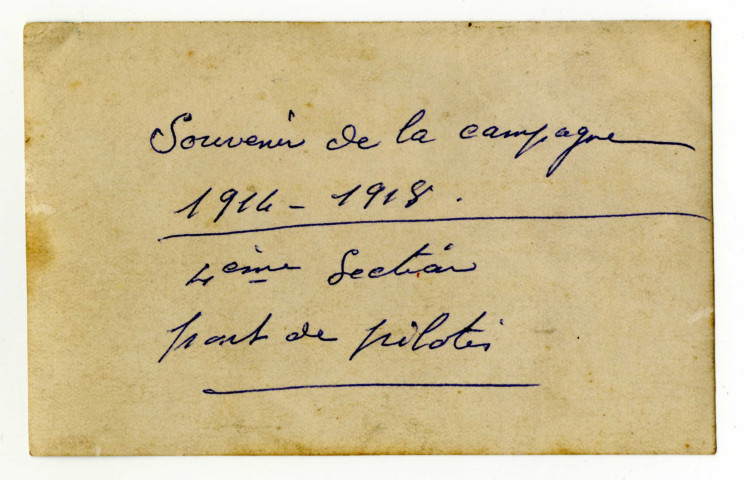 Souvenir de la campagne
1914 - 1918.
4ème Section
pont de pilotis